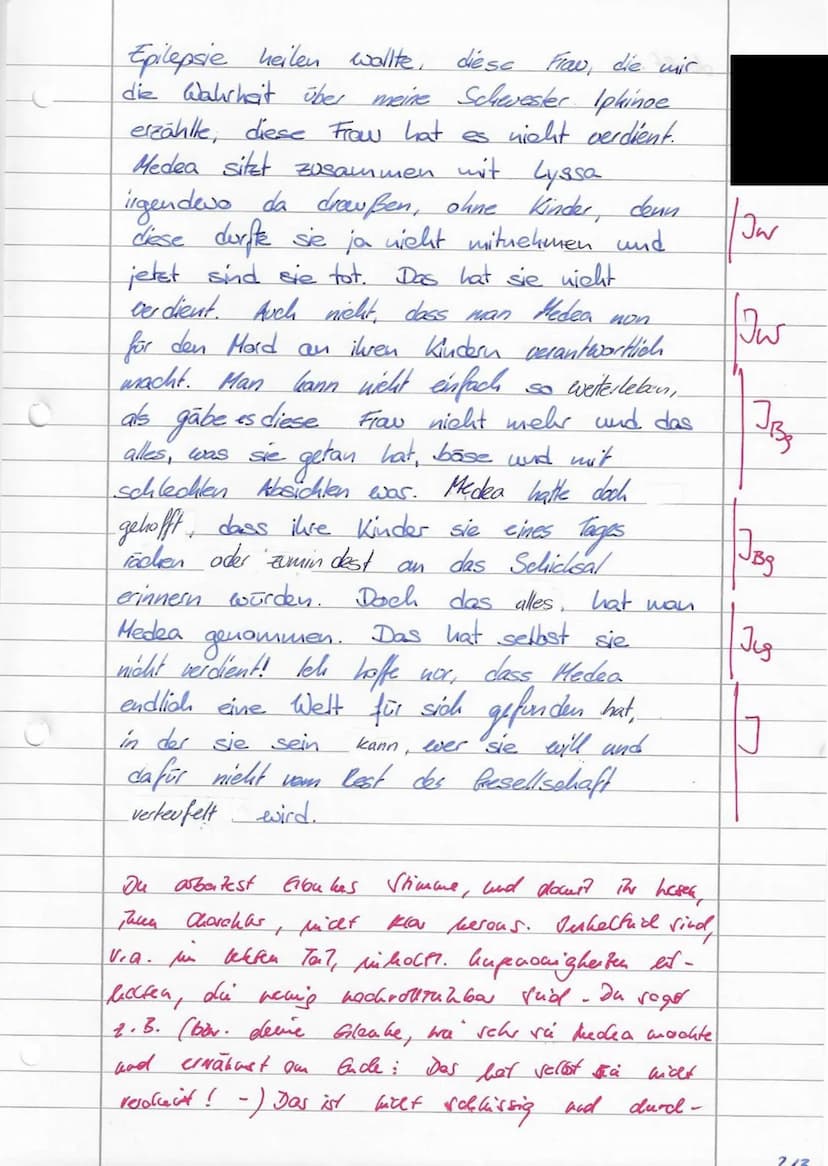 Epilepsie heilen wollte, diese Frau, die mir
die Wahrheit über meine Schwester Iphinoe
erzählte, diese Frau hat es nicht verdient.
Medea sitzt zusammen mit Lyssa
irgendwo da draußen, ohne Kinder, denn
diese durfte sie ja nicht mitnehmen und
jetzt sind sie tot. Das hat sie nicht
verdient. Auch nicht, dass man Medea nun
für den Mord an ihren Kindern verantwortlich
macht. Man kann nicht einfach so weiterleben,
als gäbe es diese Frau nicht mehr und das
alles, was sie getan hat, böse und mit
schlechten Absichten war. Medea hatte doch
gehofft, dass ihre Kinder sie eines Tages
rächen oder zumindest an das Schicksal
erinnern würden. Doch das alles, hat man
Medea genommen. Das hat selbst sie
nicht verdient! Ich hoffe nur, dass Medea
endlich eine Welt für sich gefunden hat,
in der sie sein kann, wer sie will und
dafür nicht vom Rest der Gesellschaft
verteufelt wird.
Iw
Iw
I Bg
I Bg
I
Du arbeitest Glaukes Stimme, und damit ihr Wesen,
ihren Charakter, nicht klar heraus. Inhaltlich sind,
v.a. im letzten Teil, inhaltl. Ungenauigkeiten ent-
halten, die wenig nachvollziehbar sind. Du sagst
z.B. (bzw. deine Glauke, wie sehr sie Medea mochte
und erwähnst am Ende: Das hat selbst sie nicht
verdient! -) Das ist nicht schlüssig und durch-